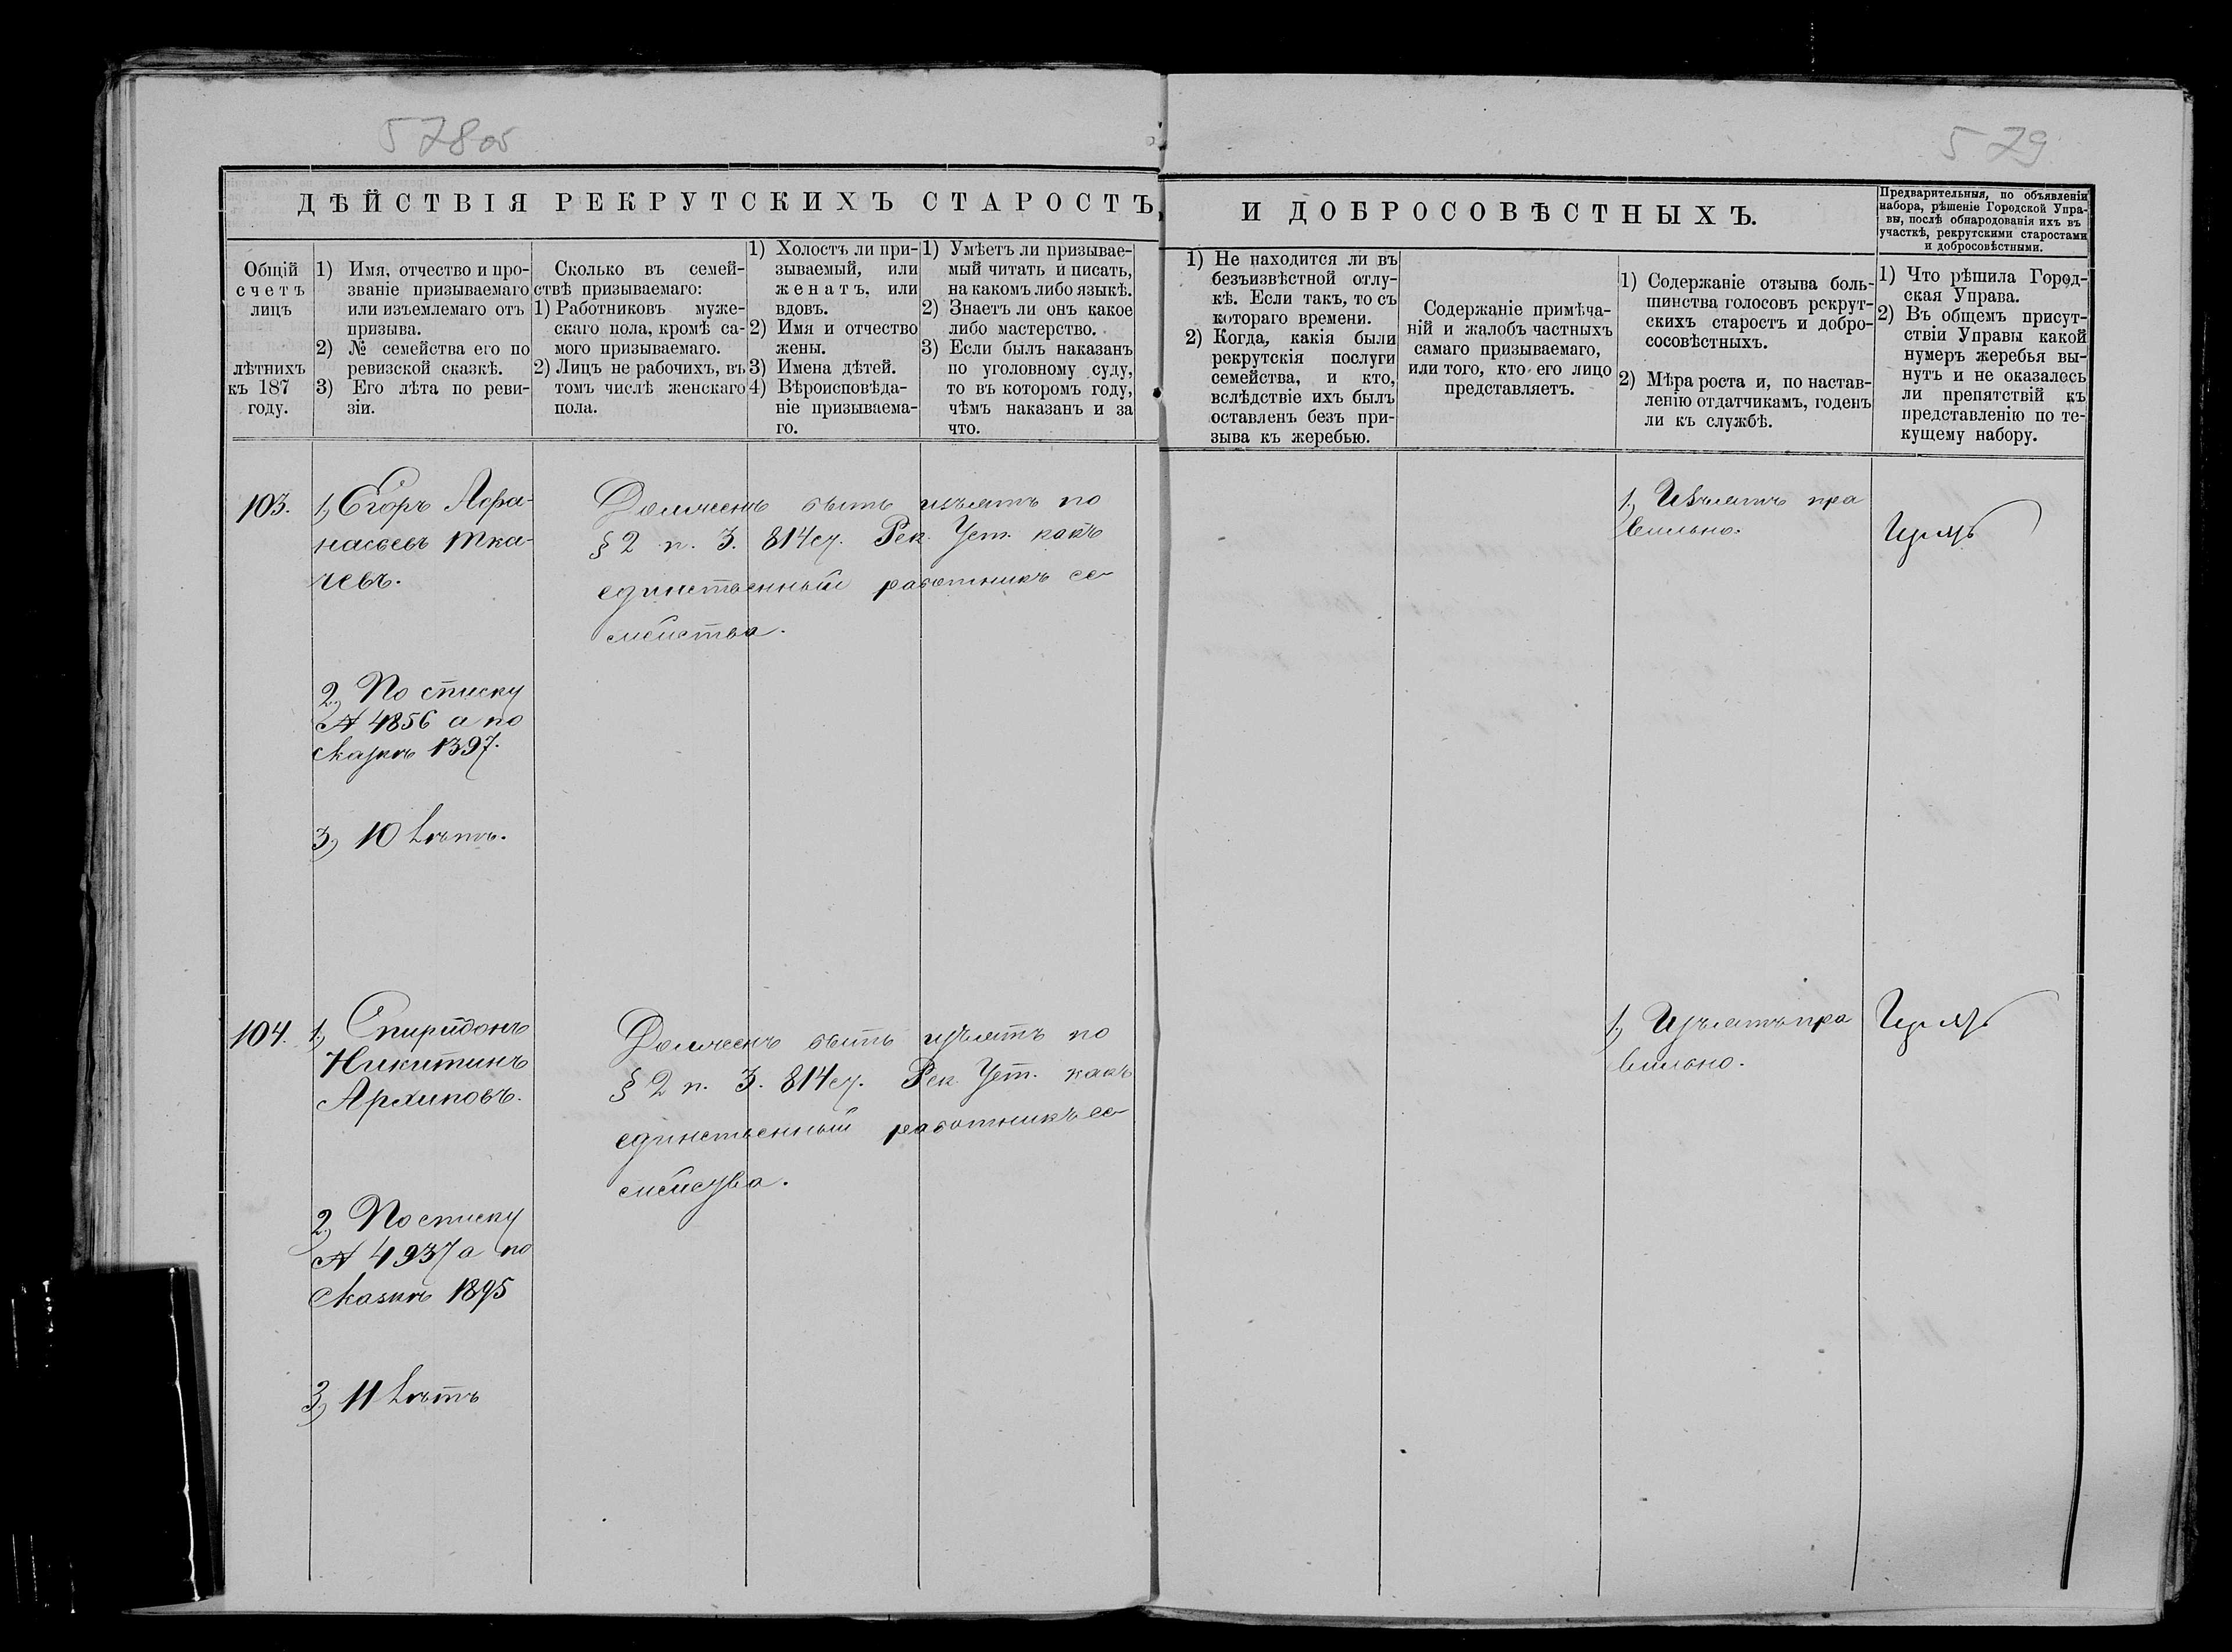 578об
579
ДѢЙСТВІЯ РЕКРУТСКИХЪ СТАРОСТЪ
И ДОБРОСОВѢСТНЫХЪ.
Предварительныя, по объявленіи
набора, рѣшеніе Городской Упра-
вы, послѣ обнародованія ихъ въ
участкѣ, рекрутскими старостами
и добросовѣстными.
Общій
счетъ
лицъ
лѣтнихъ
къ 187
году.
1) Имя, отчество и про-
званіе призываемаго
или изъемлемаго отъ
призыва.
2) № семейства его по
ревизской сказкѣ.
3) Его лѣта по реви-
зіи.
Сколько въ семей-
ствѣ призываемаго:
1) Работниковъ муже-
скаго пола, кромѣ са-
мого призываемаго.
2) Лицъ не рабочихъ, въ
томъ числѣ женскаго
пола.
1) Холостъ ли при-
зываемый, или
женатъ, или
вдовъ.
2) Имя и отчество
жены.
3) Имена дѣтей.
4) Вѣроисповѣда-
ніе призываема-
го.
1) Умѣетъ ли призывае-
мый читать и писать,
на какомъ либо языкѣ.
2) Знаетъ ли онъ какое
либо мастерство.
3) Если былъ наказанъ
по уголовному суду,
то въ которомъ году,
чѣмъ наказанъ и за
что.
1) Не находится ли въ
безъизвѣстной отлу-
кѣ. Если такъ, то съ
котораго времени.
2) Когда, какія были
рекрутскія послуги
семейства, и кто,
вслѣдствіе ихъ былъ
оставленъ безъ при-
зыва къ жеребью.
Содержаніе примѣча-
ній и жалобъ частныхъ
самаго призываемаго,
или того, кто его лицо
представляетъ.
1) Содержаніе отзыва боль-
шинства голосовъ рекрут-
скихъ старостъ и добро-
сосовѣстныхъ.
2) Мѣра роста и, по настав-
ленію отдатчикамъ, годенъ
ли къ службѣ.
1) Что рѣшила Город-
ская Управа.
2) Въ общемъ присут-
ствіи Управы какой
нумеръ жеребья вы-
нутъ и не оказалось
ли препятствій къ
представленію по те-
кущему набору.
103.
1, Егоръ Афа-
насьевъ Тка-
чевъ.
2, По списку
№ 4856 а по
сказкѣ 1397.
3, 10 лѣтъ.
Долженъ быть изъятъ по
§ 2 п. 3. 814 ст. Рек. Уст. какъ
единственный работникъ се-
мейства.
1, Изъятъ пра
вильно.
104.
1, Спиридонъ
Никитинъ
Архиповъ.
2, По списку
№ 4937 а по
сказкѣ 1895
3, 11 лѣтъ
Долженъ быть изъятъ по
§ 2 п. 3. 814 ст. Рек. Уст. какъ
единственный работникъ се-
мейства.
1, Изъятъ пра
вильно.